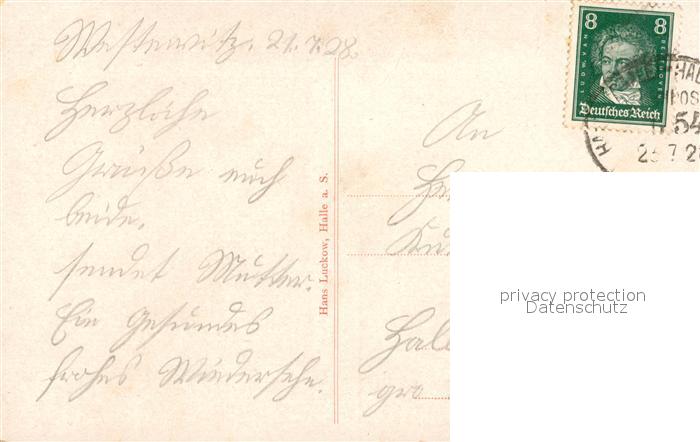 Westewitz. 21.7.28.
Herzliche
Grüße euch
beide,
sendet Mutter.
Ein gesundes
frohes Wiedersehn.
Hans Luckow, Halle a. S.
8 8
LUDW. VAN BEETHOVEN
Deutsches Reich
HAL
POS
54
7 2
An
privacy protection
Datenschutz